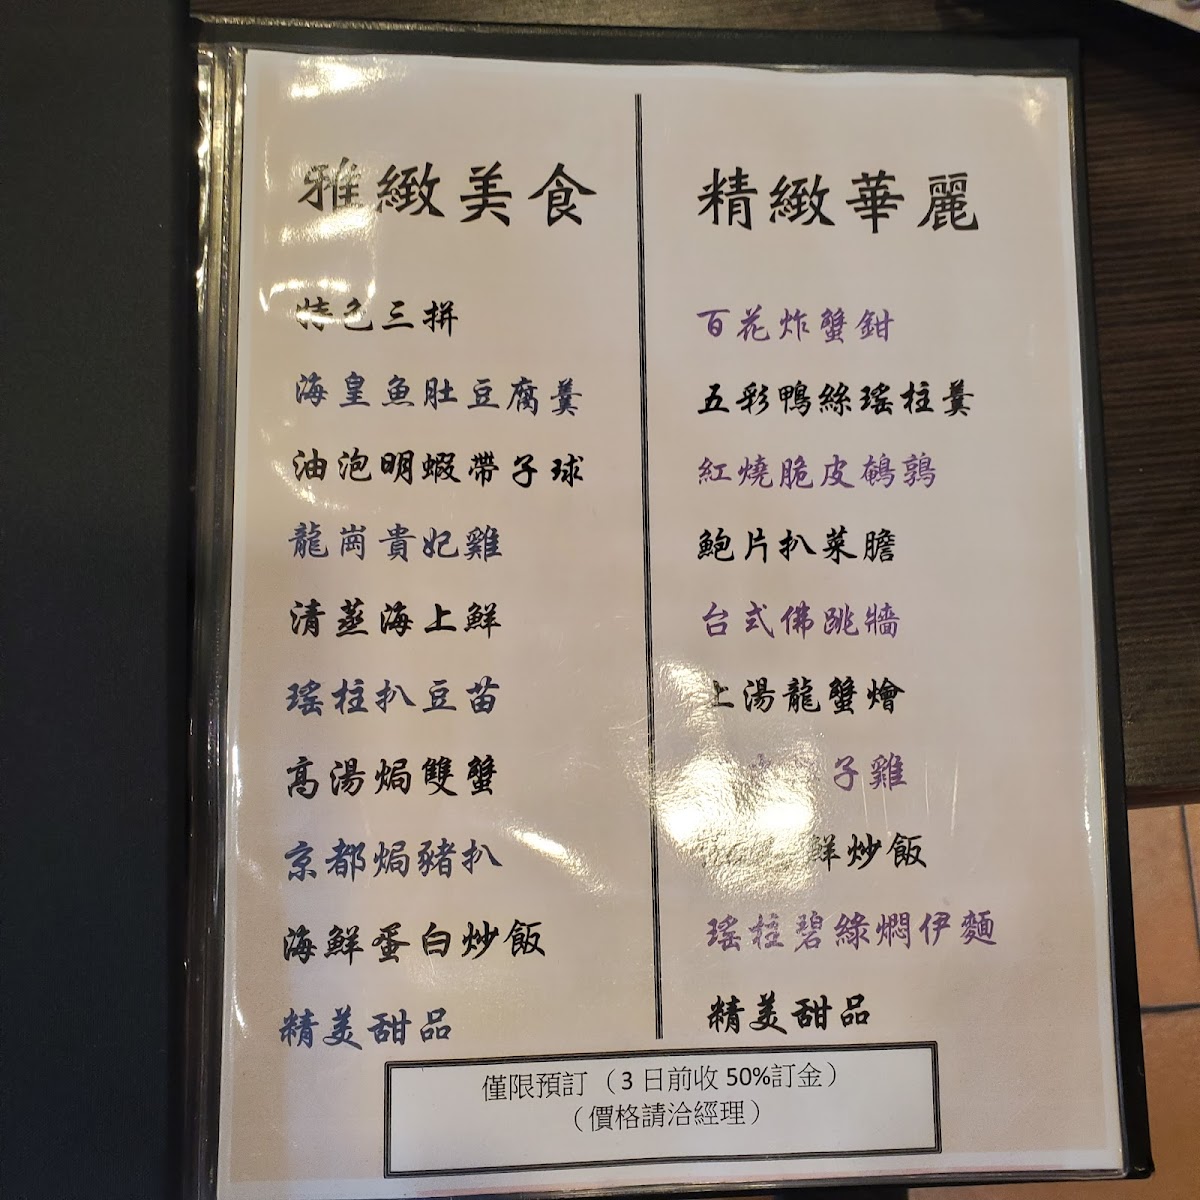 雅緻美食
特色三拼
海皇魚肚豆腐羹
油泡明蝦帶子球
龍崗貴妃雞
清蒸海上鮮
瑤柱扒豆苗
高湯焗雙蟹
京都焗豬扒
海鮮蛋白炒飯
精美甜品
精緻華麗
百花炸蟹鉗
五彩鴨絲瑤柱羹
紅燒脆皮鵪鶉
鮑片扒菜膽
台式佛跳牆
上湯龍蟹燴
子雞
鮮炒飯
瑤柱碧綠燜伊麵
精美甜品
僅限預訂（3 日前收 50%訂金）
（價格請洽經理）